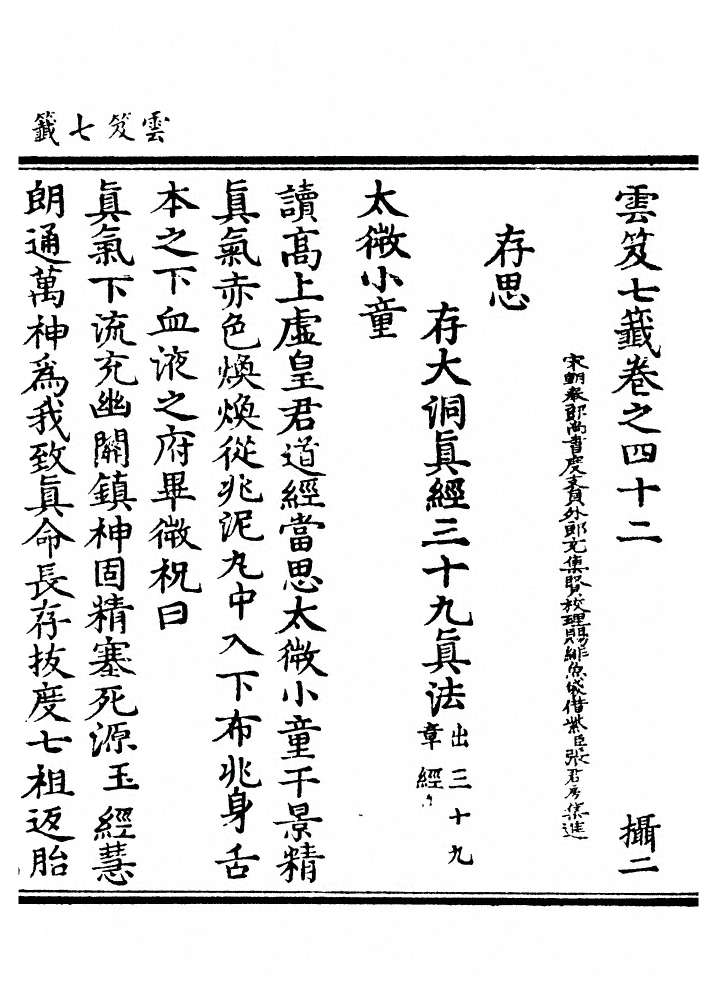 雲笈七籤
雲笈七籤卷之四十二 攝二
宋朝奉郎尚書度支員外郎充集賢校理賜緋魚袋借紫臣張君房集進
存思
存大洞眞經三十九眞法出三十九章經
太微小童
讀髙上虚皇君道經當思太微小童干景精
眞氣赤色煥煥從兆泥丸中入下布兆身舌
本之下血液之府畢微祝曰
眞氣下流充幽關鎮神固精塞死源玉經慧
朗通萬神爲我致眞命長存拔度七祖返胎